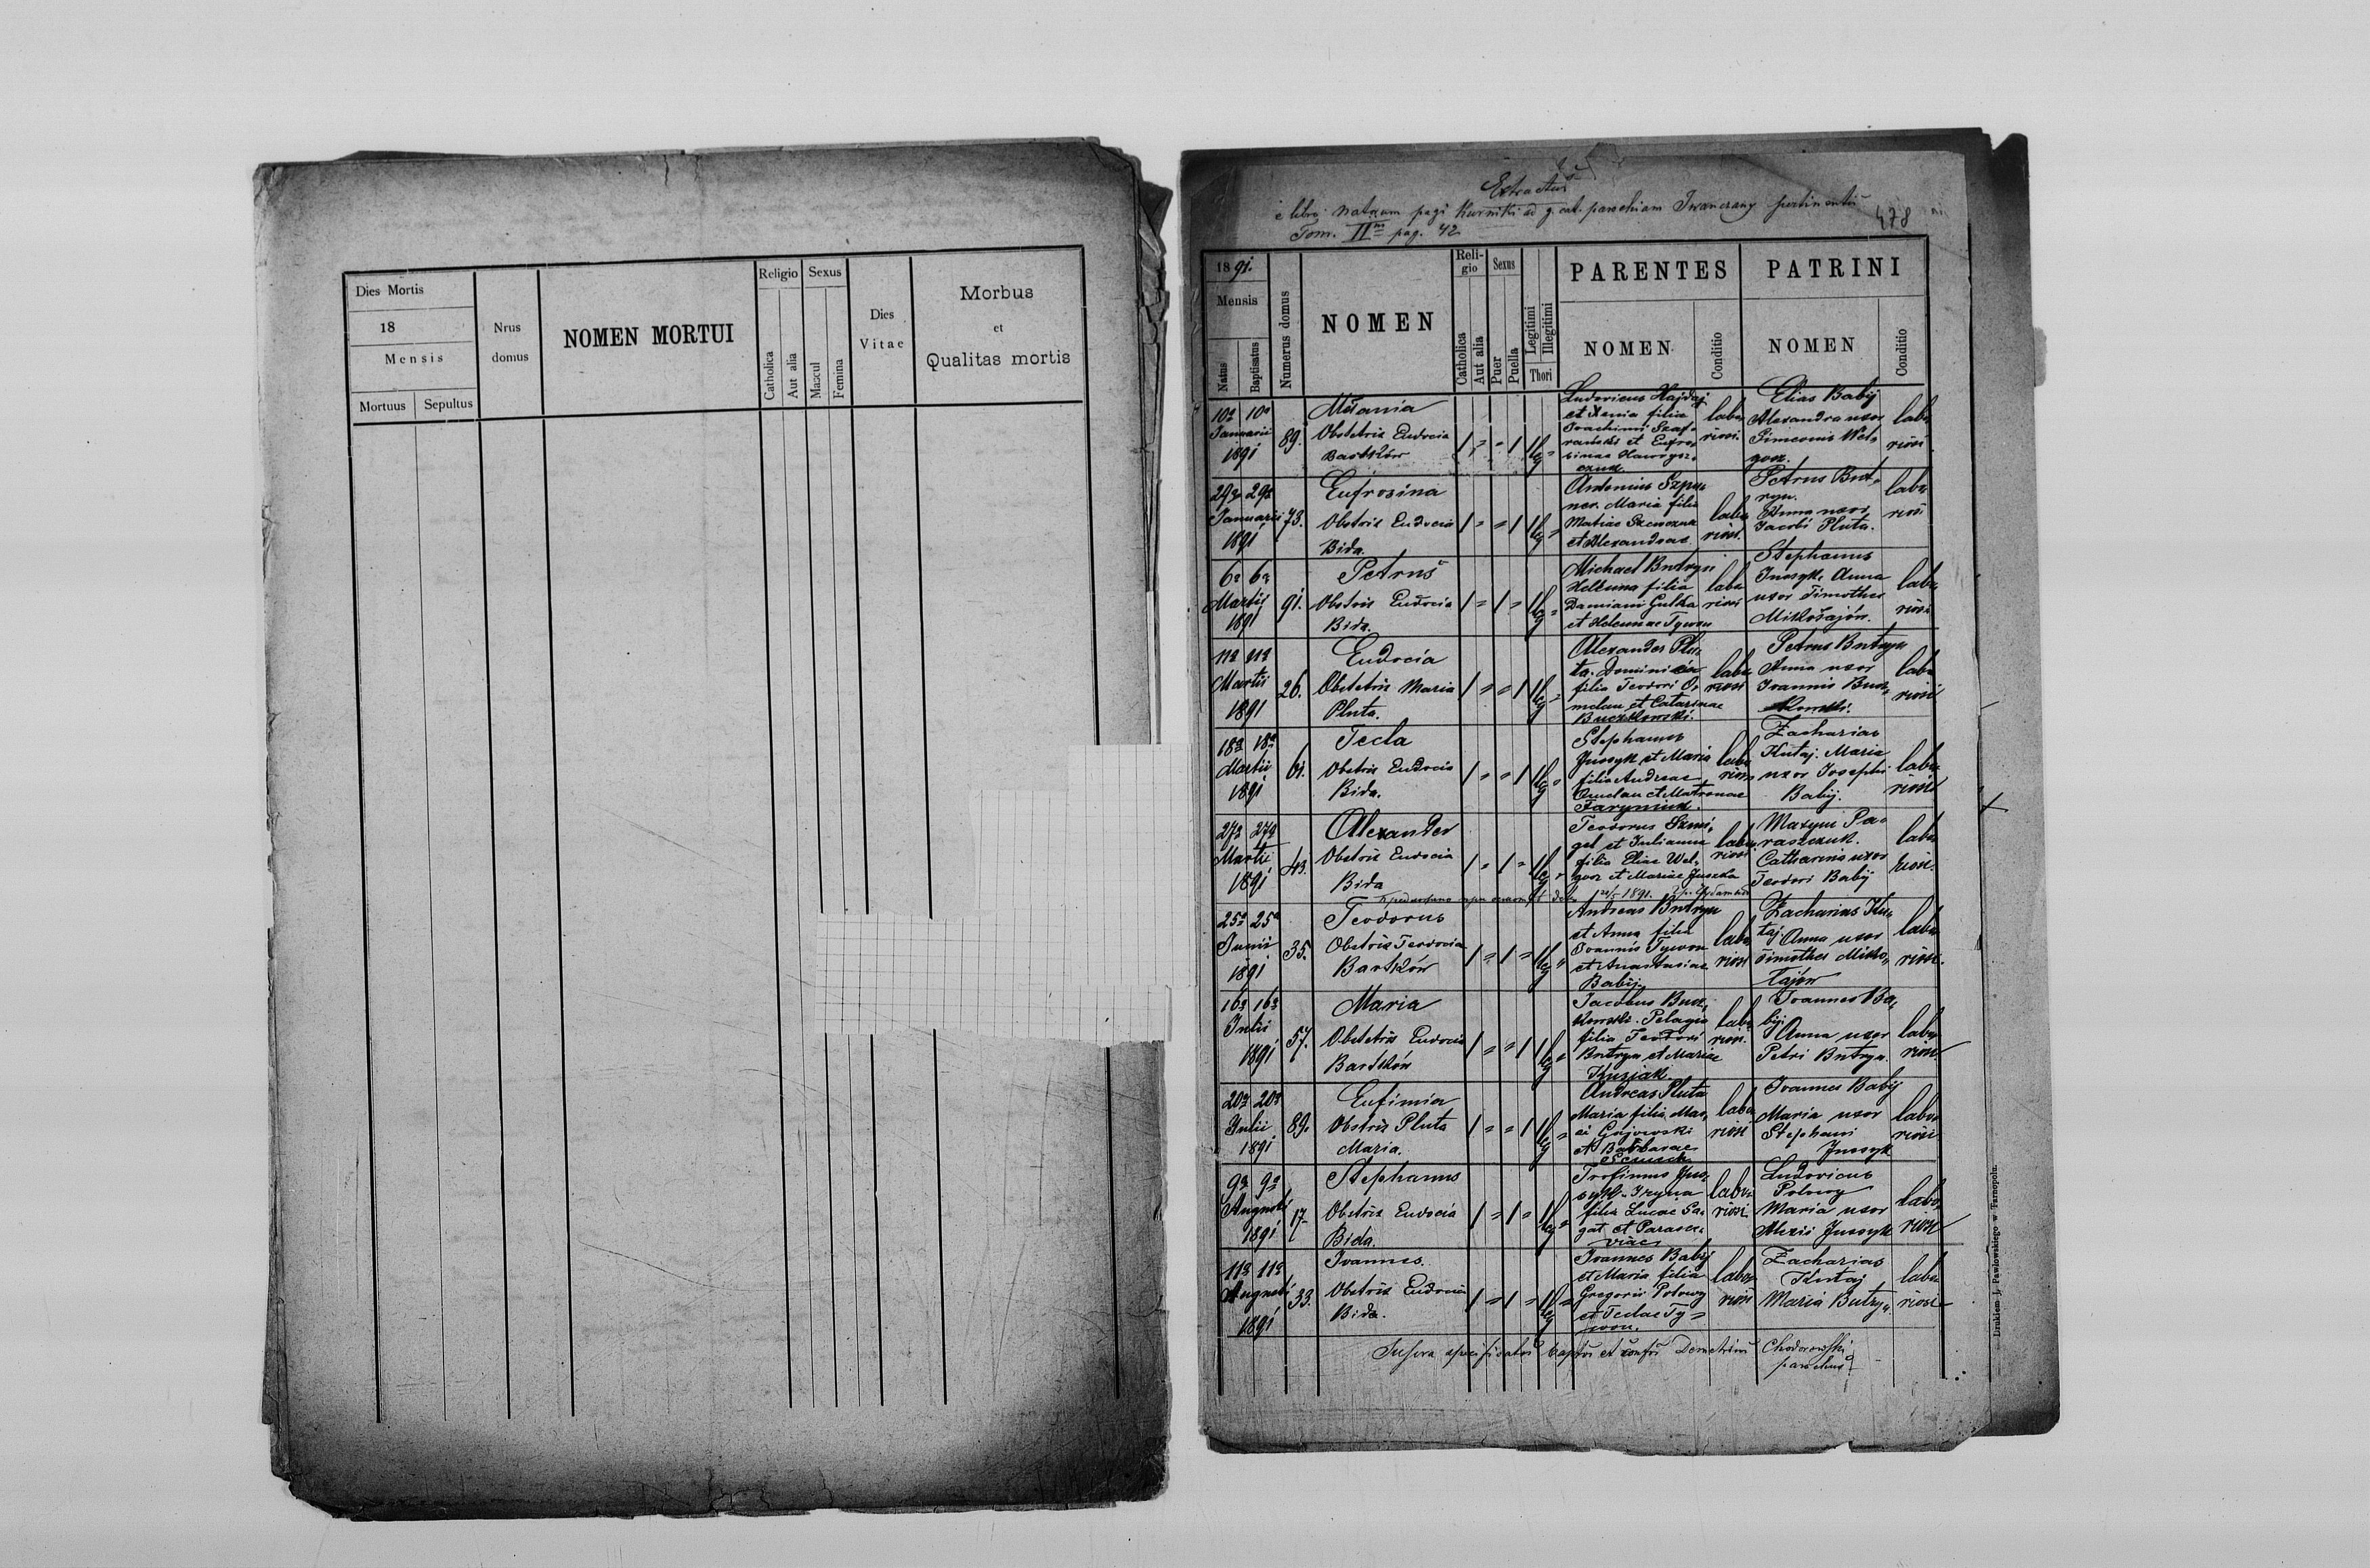 Dies Mortis
18
Mensis
Mortuus
Sepultus
Nrus
domus
NOMEN MORTUI
Religio
Catholica
Aut alia
Sexus
Mascul
Femina
Dies
Vitae
Morbus
et
Qualitas mortis
Extractus
e libro natorum pagi Kurniki ad g. cat. parochiam Iwanczany pertinentis
Tom. II pag. 42
478
1891.
Mensis
Natus
Baptisatus
Numerus domus
NOMEN
Religio
Catholica
Aut alia
Sexus
Puer
Puella
Legitimi
Illegitimi
Thori
PARENTES
NOMEN
Conditio
PATRINI
NOMEN
Conditio
10a 10a
Januarii
1891
89.
Obstetrix Eudocia
Bartków
Ludovicus Hajdaj
et Xenia filia
Joachimi
labo
riosi
Elias Babij
Alexandra uxor
Simeonis Wel
goz.
labo
riosi
29a 29a
Januarii
1891
73.
Eufrosina
Obstrix Eudocia
Bida.
Antonius
Maria filia
et Alexandrae
labo
riosi
Petrus But
ryn.
Anna uxor
Jacobi Pluta.
labo
riosi
6a 6a
Martii
1891
91.
Petrus
Obstrix Eudocia
Bida.
Michael Butryn
Helena filia
Damiani Gulka
et Helenae Tywon
labo
riosi
Stephanus
Jussyk. Anna
uxor Timothei
Mikołajów.
labo
riosi
11a 11a
Martii
1891
26.
Eudocia
Obstetrix Maria
Pluta.
Alexander Plu
ta. Dominica
filia Teodori O
melan et Catarinae
Buczkowski.
labo
riosi
Petrus Butryn
Anna uxor
Joannis Bucz
kowski.
labo
riosi
18a 18a
Martii
1891
61.
Tecla
Obstrix Eudocia
Bida.
Stephanus
Jussyk et Maria
filia Andreae
Omelan et Matronae
labo
riosi
Zacharias
Kutaj. Maria
uxor Josephi
Babij.
labo
riosi
27a 27a
Martii
1891
43.
Alexander
Obstrix Eudocia
Bida
Teodorus Szmi
gel et Julianna
filia Eliae Wel
goz et Mariae
labo
riosi
Maxym Pa
raszczuk.
Catharina uxor
Teodori Babij
labo
riosi
25a 25a
Junii
1891
35.
Teodorus
Obstrix Teodocia
Bartków
Andreas Butryn
et Anna filia
Joannis Tywon
et Anastasiae
Babij.
labo
riosi
Zacharias Ku
taj Anna uxor
Timothei Miko
łajów
labo
riosi.
16a 16a
Julii
1891
57.
Maria
Obstetrix Eudocia
Bartków
Jacobus Bucz
kowski. Pelagia
filia Teodori
Butryn et Mariae
Kuziak.
labo
riosi.
Joannes Ba
bij
Anna uxor
Petri Butryn.
labo
riosi
20a 20a
Julii
1891
89.
Eufimia
Obstrix Pluta
Maria.
Andreas Pluta
Maria filia Mac
ei Gajowski
et Barbarae
labo
riosi
Joannes Babij
Maria uxor
Stephani
Jussyk
labo
riosi
9a 9a
Augusti
1891
17.
Stephanus
Obstrix Eudocia
Bida.
Trofimus Jus
syk. Iryna
filia Lucae Sa
gat et Parasce
viae
labo
riosi
Ludovicus
Polowy
Maria uxor
Alexii Jussyk
labo
riosi
11a 11a
Augusti
1891
33.
Joannes.
Obstrix Eudocia
Bida.
Joannes Babij
et Maria filia
Gregorii Polowy
et Teclae Ty
won.
labo
riosi
Zacharias
Kutaj
Maria Butryn.
labo
riosi
Supra specificatos Demetrius Chodorowski
parochus
Drukiem J. Pawłowskiego w Tarnopolu.